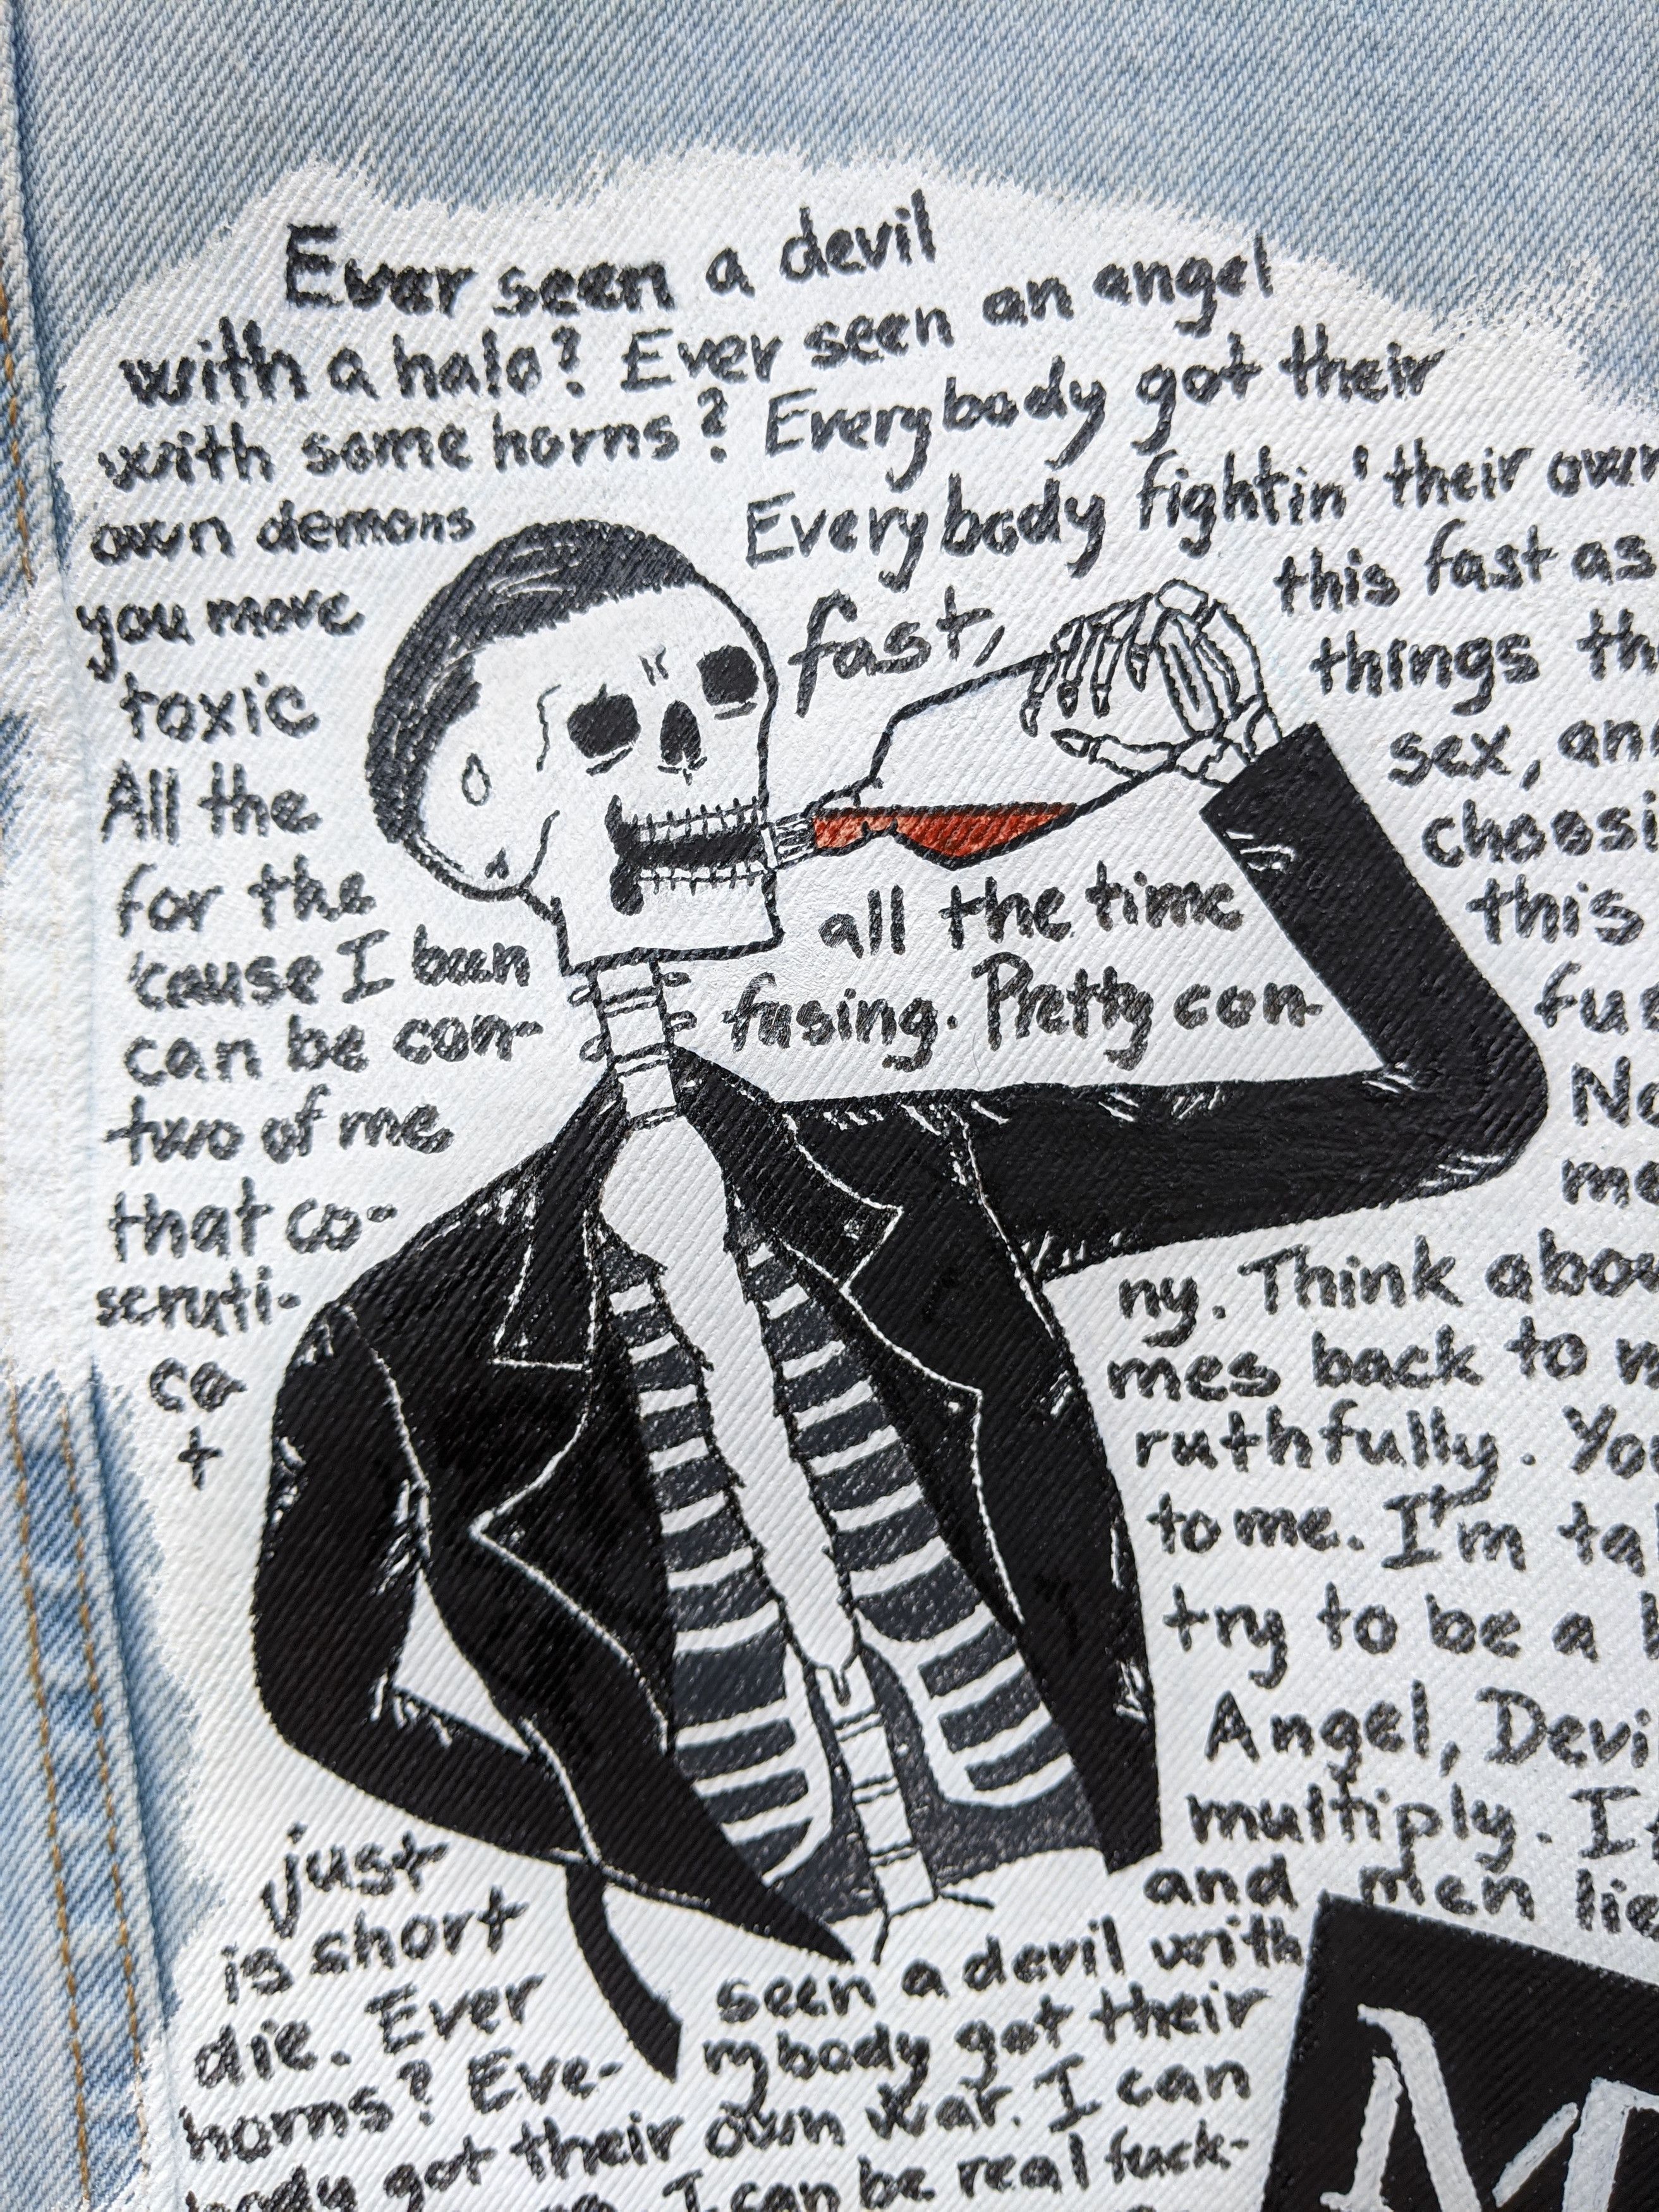 Ever seen a devil
with a halo? Ever seen an angel
with some horns? Everybody got their
own demons Everybody fightin' their own
you more fast, this fast as
toxic things th
All the sex, an
for the all the time choosi
'cause I been fusing. Pretty con- this
can be con- fus
two of me No
that co- me
scruti- ny. Think abou
co mes back to m
t ruthfully. Yo
to me. I'm ta
try to be a
Angel, Devi
multiply. I
just and men lie
is short seen a devil with
die. Ever rybody got their
horns? Eve- own war. I can
body got their I can be real fuck-
M